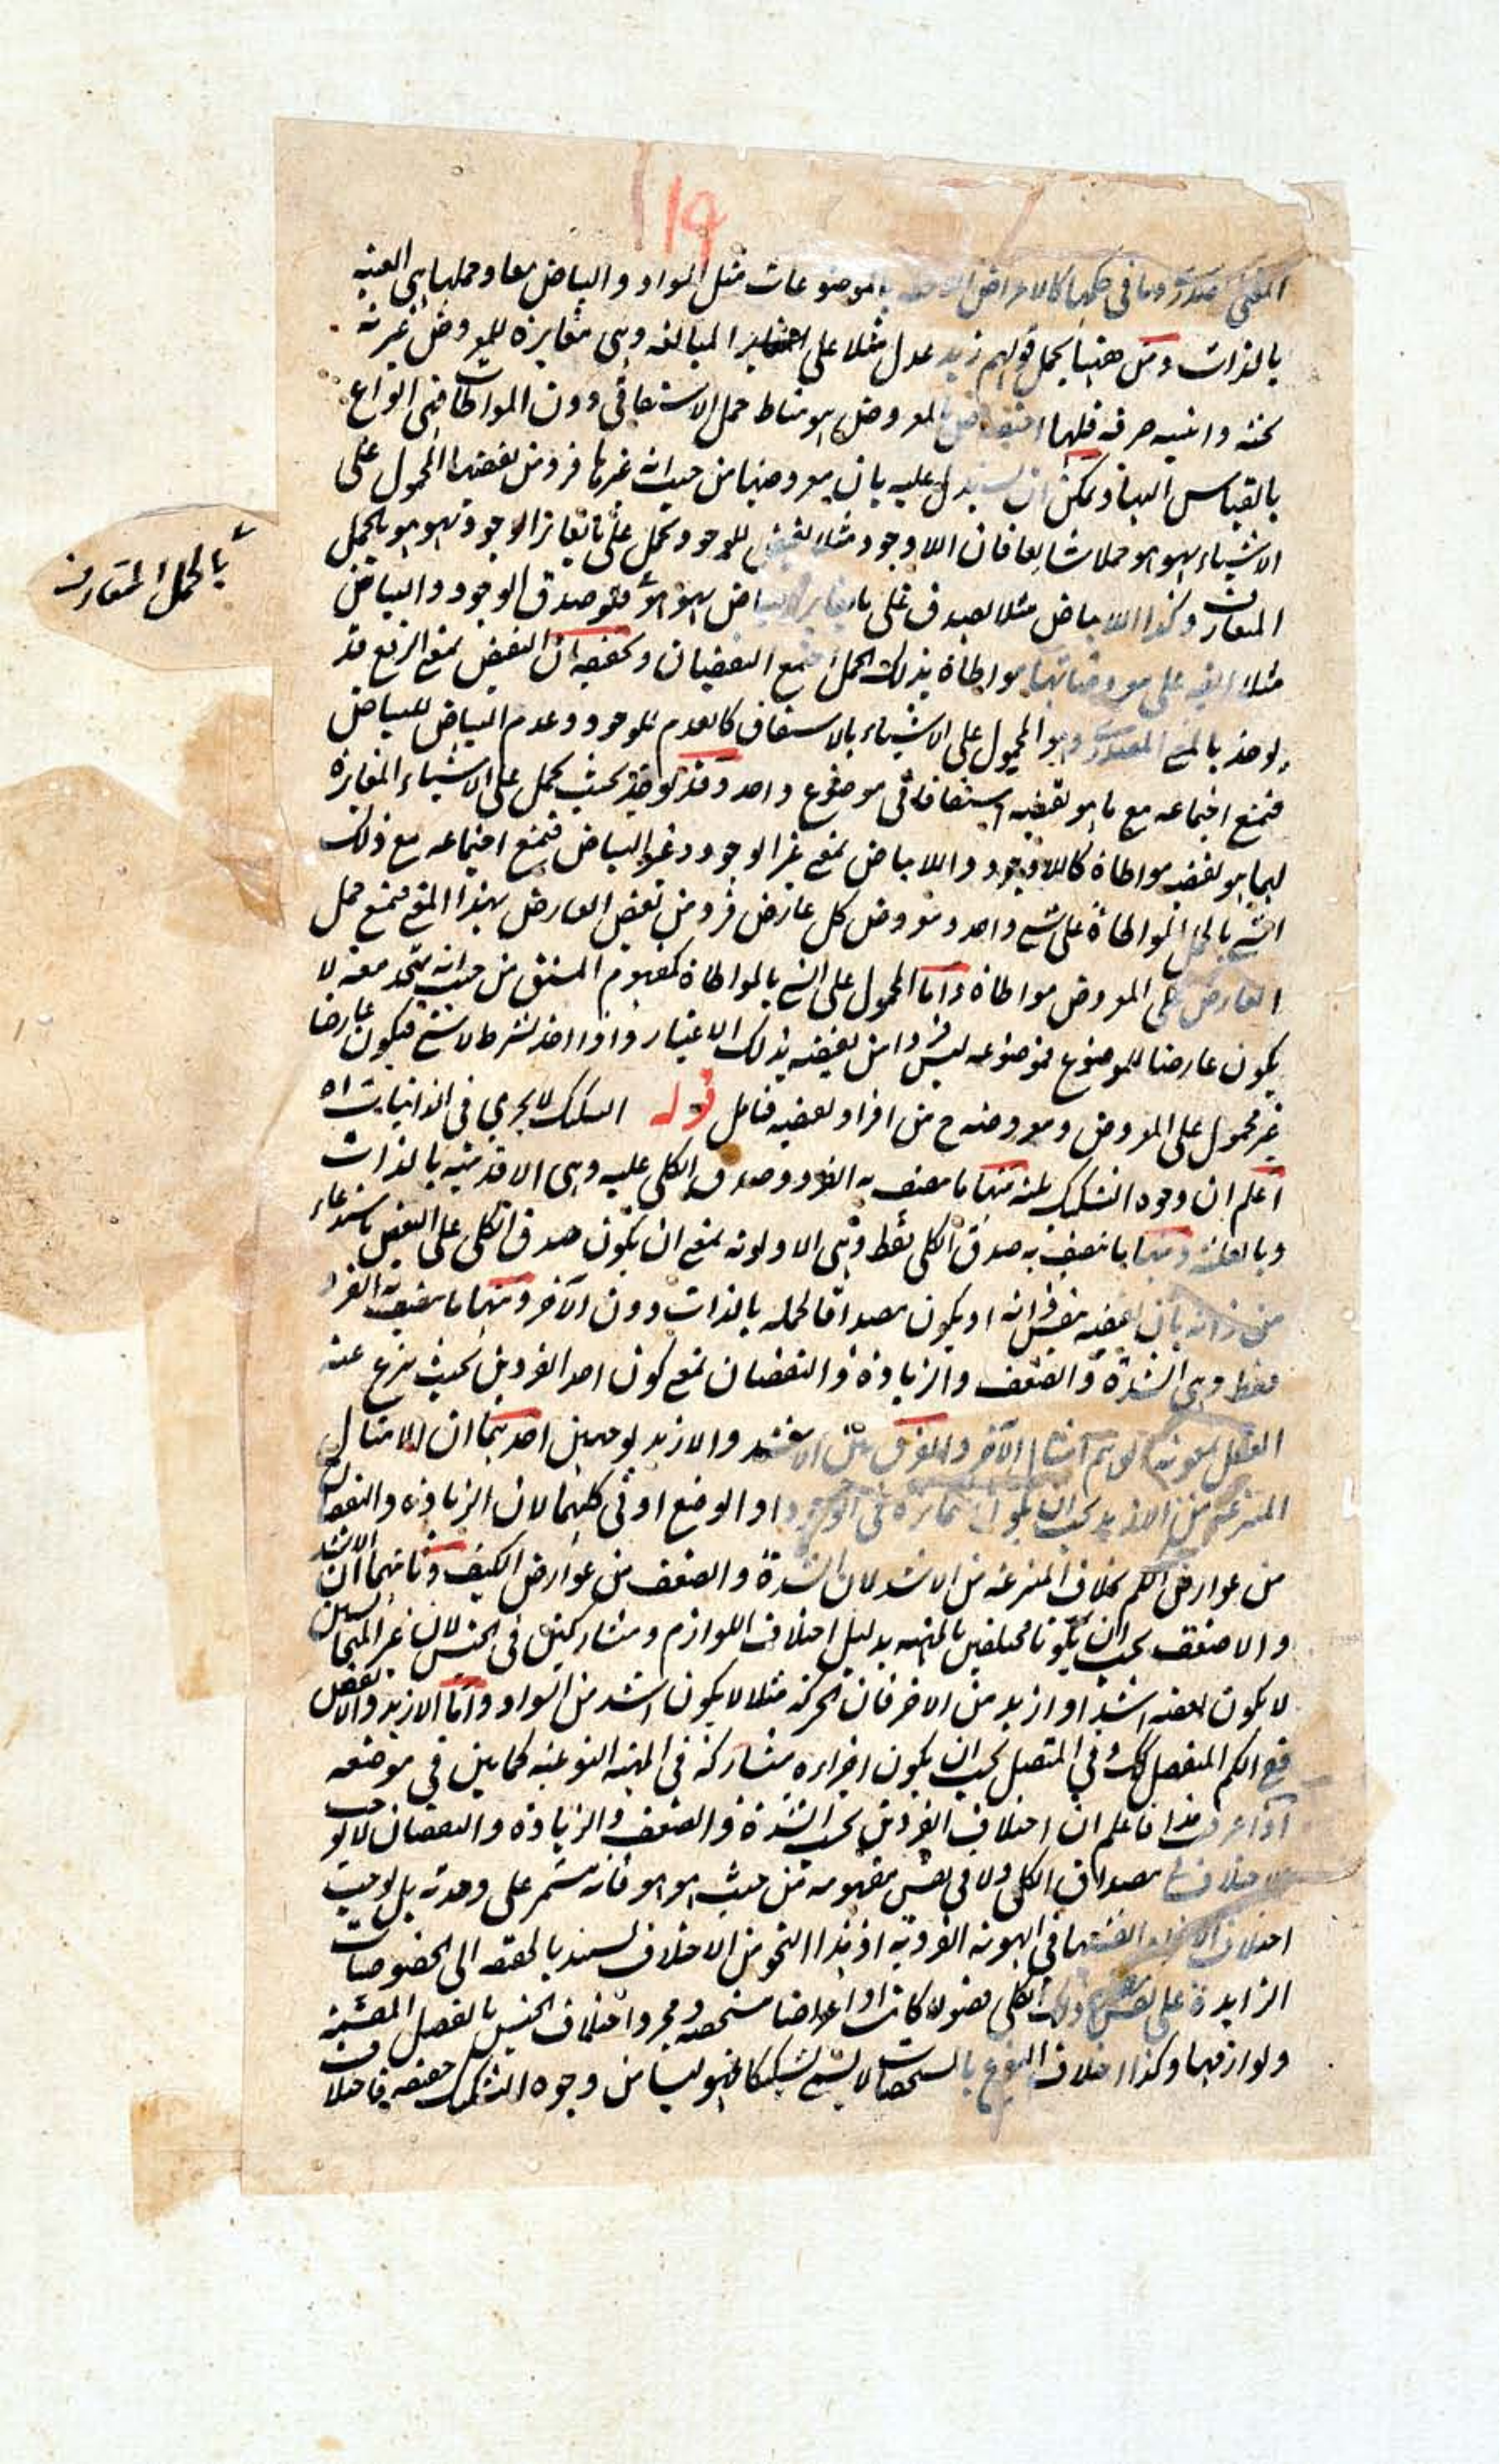 ١١٩
بالموضوعات مثل السواد والبياض معا وحملها هي العينية
بالذات ومن ههنا يحمل قولهم زيد عدل مثلا على المبالغة وهي مغايرة للمعروض غيرية
بحتة واثنينية صرفة فلها المعروض هو مناط حمل الاشتقاق دون المواطاة فهي انواع
بالقياس اليها ويمكن ان يستدل عليه بان معروضها من حيث انه غيرها فرد من نقيضها المحمول على
الاشياء بهو هو حملا شايعا فان اللاوجود مثلا نقيض للوجود يحمل على ما يغاير الوجود بهو هو بالحمل
المتعارف وكذا اللابياض مثلا يصدق على ما يغاير البياض بهو هو فلو صدق الوجود والبياض
مثلا ايضا على معروضاتهما مواطاة بذلك الحمل اجتمع النقيضان وتحقيقه ان النقيض بمعنى الرفع قد
يوخذ بالمعنى المصدري وهو المحمول على الاشياء بالاشتقاق كالعدم للوجود وعدم البياض للبياض
فيمتنع اجتماعه مع ما هو نقيضه اشتقاقا في موضوع واحد وقد يوخذ بحيث يحمل على الاشياء المغايرة
لما هو نقيضه مواطاة كاللاوجود واللابياض بمعنى غير الوجود وغير البياض فيمتنع اجتماعه مع ذلك
الشي بالحمل المواطاة على شي واحد ومعروض كل عارض فرد من نقيض العارض بهذا المعنى فيمتنع حمل
العارض على المعروض مواطاة واما المحمول على الشي بالمواطاة كمفهوم المشتق من حيث انه متحد معه لا
يكون عارضا للموضوع فموضوعه ليس فردا من نقيضه بذلك الاعتبار واذا اخذ بشرط لا شي فيكون عارضا
غير محمول على المعروض ومعروضه ح من افراد نقيضه فتامل قوله التشكيك لا يجري في الذاتيات اه
اعلم ان وجوه التشكيك ثلثة منها ما يتصف به الفرد وصدق الكلي عليه وهي الاقدمية بالذات
وبالعلية ومنها ما يتصف به صدق الكلي فقط وهي الاولوية بمعنى ان يكون صدق الكلي على البعض باستدعاء
من ذاته بان يقتضيه بنفس ذاته او يكون مصداقا لحمله بالذات دون الآخر ومنها ما يتصف به الفرد
فقط وهي الشدة والضعف والزيادة والنقصان بمعنى كون احد الفردين بحيث ينتزع عنه
العقل بمعونة الوهم امثال الآخر والفرق بين الاشد والازيد بوجهين احدهما ان الامثال
المنتزعة من الازيد يجب ان يكون متمايزة في الوجود او الوضع او في كليهما لان الزيادة والنقصان
من عوارض الكم بخلاف المنتزعة من الاشد لان الشدة والضعف من عوارض الكيف وثانيهما ان الاشد
والاضعف يجب ان يكونا مختلفين بالمهية بدليل اختلاف اللوازم ومتشاركين في الجنس لان غير المتجانسين
لا يكون بعضه اشد او ازيد من الاخر فان الحركة مثلا لا يكون اشد من السواد واما الازيد والانقص
فع الكم المنفصل كك وفي المتصل يجب ان يكون اجزاءه متشاركة في المهية النوعية كما بين في موضعه
اذا عرفت هذا فاعلم ان اختلاف الفردين بحسب الشدة والضعف والزيادة والنقصان لا يوجب
الاختلاف مصداق الكلي ولا في نفس مفهومه من حيث هو هو فانه مستمر على وحدته بل يوجب
اختلاف في الهوية الفردية اذ هذا النحو من الاختلاف يستند بالحقيقة الى الخصوصيات
الزايدة على نفس ذلك الكلي فصولا كانت او اعراضا مشخصة ومجرد اختلاف الجنس بالفصل المقسمة
ولوازمها وكذا اختلاف النوع بالمشخصات لا يسمى تشكيكا فهو ليسا من وجوه التشكيك حقيقة فاختلاف
بالحمل المتعارف